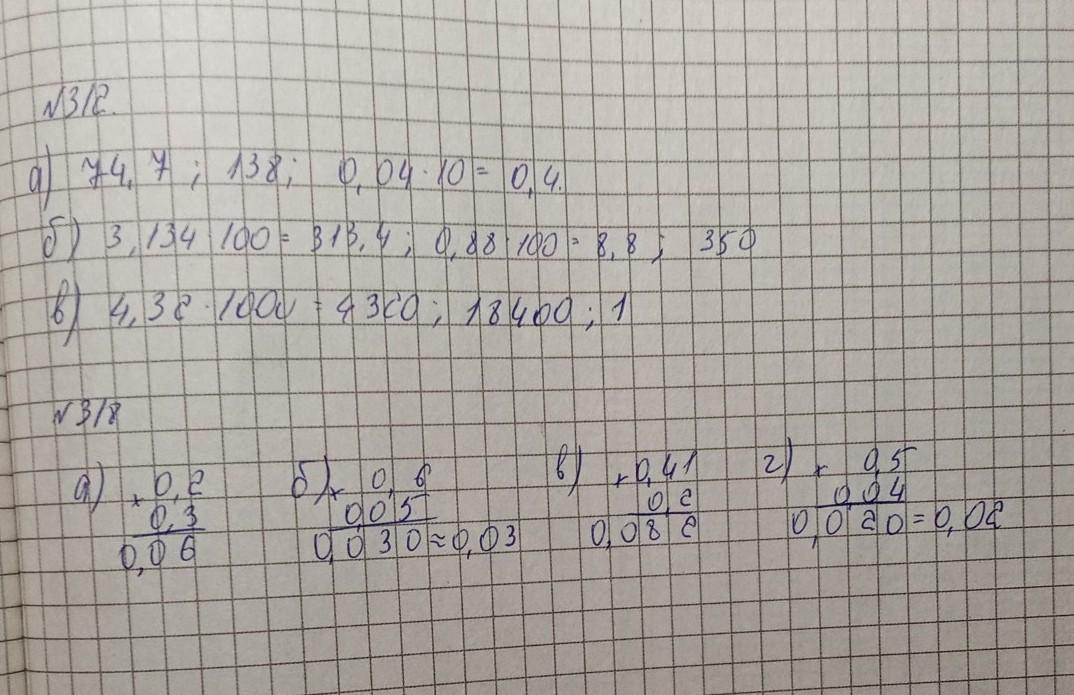 №312.
а) 74,7; 138; 0,04·10=0,4.
б) 3,134·100=313,4; 0,88·100=8,8; 350
в) 4,32·1000=4320; 18400; 1
№318
а) × 0,2 б) × 0,6 в) × 0,41 г) × 0,5
0,3 0,05 0,2 0,04
0,06 0,030≈0,03 0,082 0,020=0,02